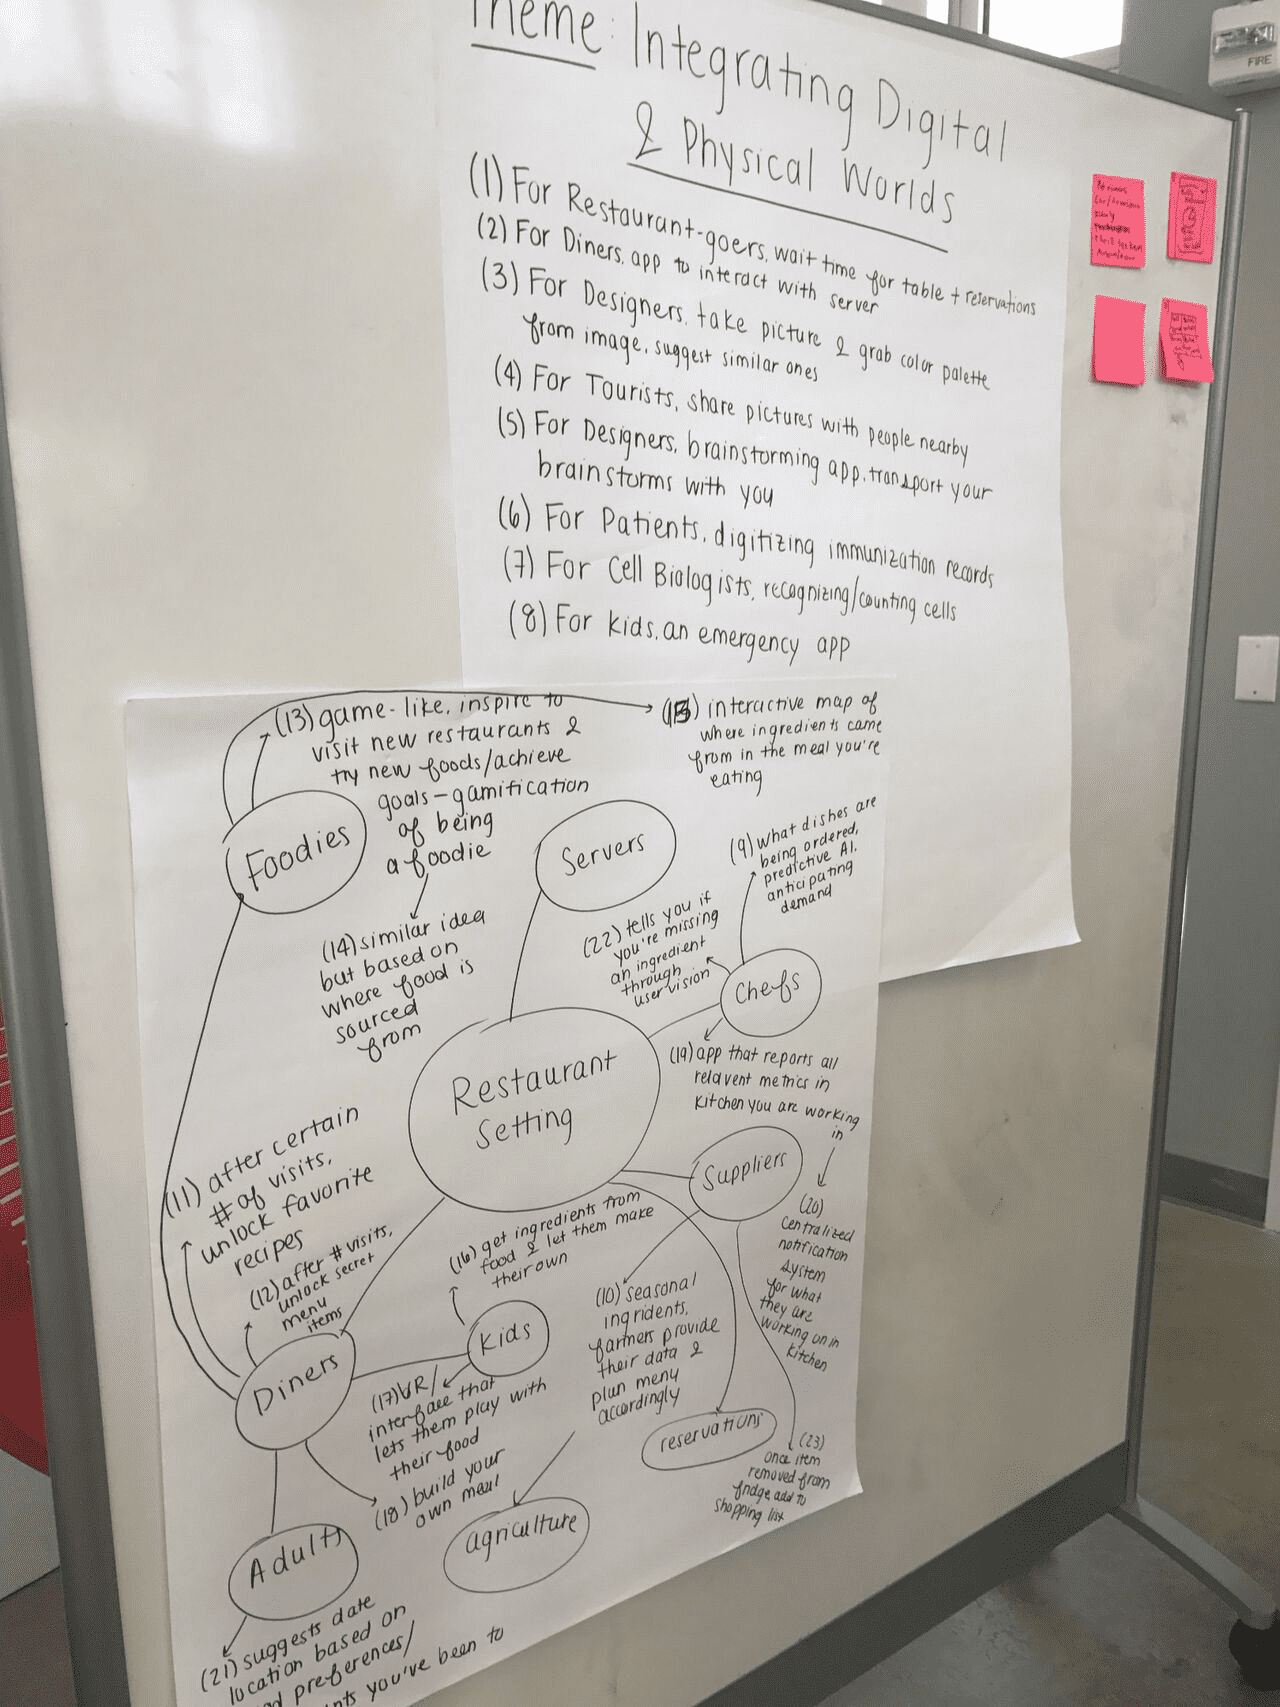 Theme: Integrating Digital
& Physical Worlds
(1) For Restaurant-goers, wait time for table + reservations
(2) For Diners, app to interact with server
(3) For Designers, take picture & grab color palette
from image, suggest similar ones
(4) For Tourists, share pictures with people nearby
(5) For Designers, brainstorming app, transport your
brainstorms with you
(6) For Patients, digitizing immunization records
(7) For Cell Biologists, recognizing/counting cells
(8) For kids, an emergency app
FIRE
(13) game-like, inspire to
visit new restaurants &
try new foods/achieve
goals - gamification
of being
a foodie
interactive map of
where ingredients came
from in the meal you're
eating
Foodies
Servers
(9) what dishes are
being ordered,
predictive AI,
anticipating
demand
(14) similar idea
but based on
where food is
sourced
from
(22) tells you if
you're missing
an ingredient
through
user vision
Chefs
Restaurant
Setting
(19) app that reports all
relavent metrics in
kitchen you are working
in
(11) after certain
# of visits,
unlock favorite
recipes
Suppliers
(20)
centralized
notification
system
for what
they are
working on in
kitchen
(12) after # visits,
unlock secret
menu
items
(16) get ingredients from
food & let them make
their own
(10) seasonal
ingridents,
farmers provide
their data &
plan menu
accordingly
Kids
Diners
(17) VR/
interface that
lets them play with
their food
(18) build your
own meal
reservations
(23)
once item
removed from
fridge add to
shopping list
agriculture
Adults
(21) suggests date
location based on
preferences/
you've been to